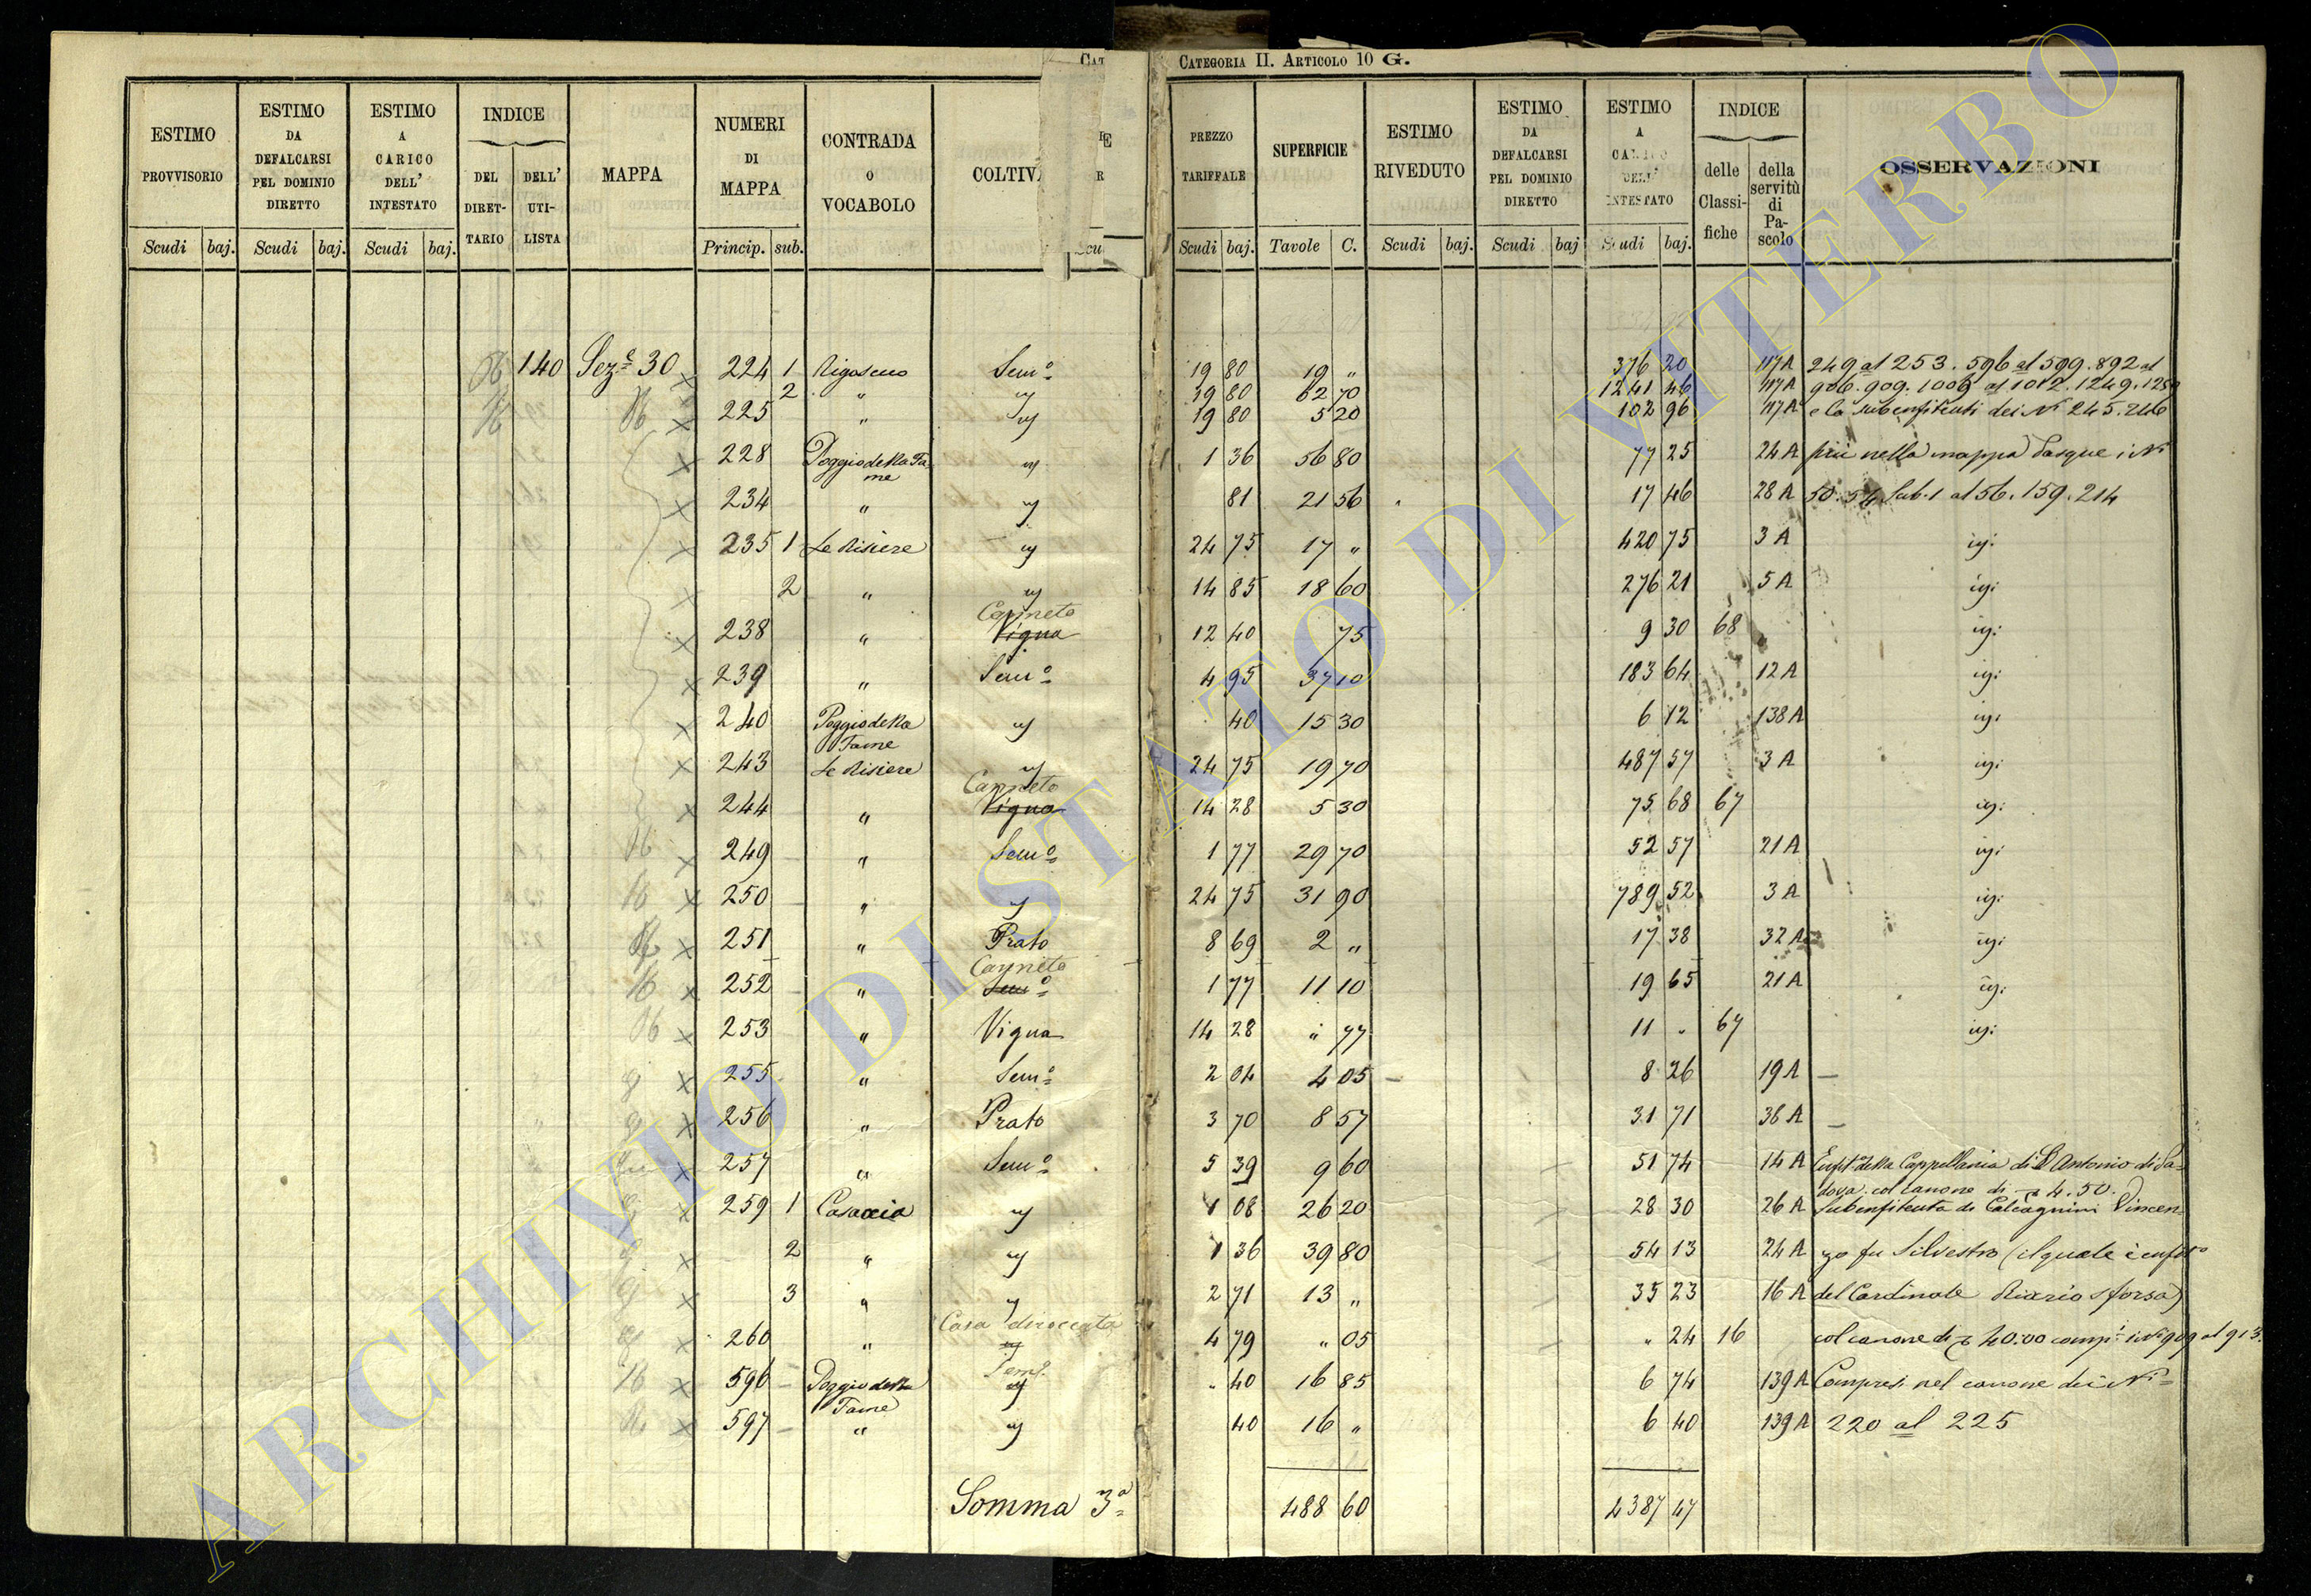 CATEGORIA II. ARTICOLO 10 G.
ESTIMO PROVVISORIO | ESTIMO DA DEFALCARSI PEL DOMINIO DIRETTO | ESTIMO A CARICO DELL' INTESTATO | INDICE | MAPPA | NUMERI DI MAPPA | CONTRADA O VOCABOLO | COLTIV | PREZZO TARIFFALE | SUPERFICIE | ESTIMO RIVEDUTO | ESTIMO DA DEFALCARSI PEL DOMINIO DIRETTO | ESTIMO A DELL' INTESTATO | INDICE | OSSERVAZIONI
DEL DIRETTARIO | DELL' UTILISTA | delle Classifiche | della servitù di Pascolo
Scudi | baj. | Scudi | baj. | Scudi | baj. | Princip. | sub. | Scudi | baj. | Tavole | C. | Scudi | baj. | Scudi | baj | Scudi | baj.
140 | Seze 30 | 224 | 1 | Rigoseuo | Semo | 19 | 80 | 19 | " | 376 | 20 | 117A | 249 al 253. 596 al 599. 892 al
2 | " | 19 | 80 | 62 | 70 | 1241 | 46 | 117A | 906. 909. 1006 al 1012. 1249.
225 | " | 19 | 80 | 5 | 20 | 102 | 96 | 117A | e la subenfiteuti dei Ni 245. 246
228 | Poggio della Fame | 1 | 36 | 56 | 80 | 77 | 25 | 24 A | più nella mappa Pasque i Ni
234 | " | 81 | 21 | 56 | 17 | 46 | 28 A | 50. 54 Sub. 1 al 56. 159. 214
235 | 1 | Le Risiere | 24 | 75 | 17 | " | 420 | 75 | 3 A
2 | " | 14 | 85 | 18 | 60 | 276 | 21 | 5 A
238 | " | Canneto Vigna | 12 | 40 | 75 | 9 | 30 | 68
239 | " | Semo | 4 | 95 | 37 | 10 | 183 | 64 | 12 A
240 | Poggio della Fame | 40 | 15 | 30 | 6 | 12 | 138 A
243 | Le Risiere | 24 | 75 | 19 | 70 | 487 | 57 | 3 A
244 | " | Canneto Vigna | 14 | 28 | 5 | 30 | 75 | 68 | 67
249 | " | Semo | 1 | 77 | 29 | 70 | 52 | 57 | 21 A
250 | " | 24 | 75 | 31 | 90 | 789 | 52 | 3 A
251 | " | Prato | 8 | 69 | 2 | " | 17 | 38 | 32 A
252 | " | Canneto Semo | 1 | 77 | 11 | 10 | 19 | 65 | 21 A
253 | " | Vigna | 14 | 28 | " | 77 | 11 | " | 67
255 | " | Semo | 2 | 04 | 4 | 05 | 8 | 26 | 19 A | —
256 | " | Prato | 3 | 70 | 8 | 57 | 31 | 71 | 36 A | —
257 | " | Semo | 5 | 39 | 9 | 60 | 51 | 74 | 14 A | Enfita della Cappellania di S. Antonio di Padova col canone di 4.50
259 | 1 | Casaccia | 1 | 08 | 26 | 20 | 28 | 30 | 26 A | Subenfiteuta di Calcagnini Vincen-
2 | " | 1 | 36 | 39 | 80 | 54 | 13 | 24 A | zo fu Silvestro (il quale è enfito
3 | " | 2 | 71 | 13 | " | 35 | 23 | 16 A | del Cardinale Riario Sforsa)
260 | " | Casa diroccata | 4 | 79 | " | 05 | " | 24 | 16 | col canone di 40:00 compi i Ni 909 al 913.
596 | Poggio della Fame | Semo | " | 40 | 16 | 85 | 6 | 74 | 139 A | Compresi nel canone dei Ni
597 | " | 40 | 16 | " | 6 | 40 | 139 A | 220 al 225
Somma 3a | 488 | 60 | 4387 | 47
ARCHIVIO DI STATO DI VITERBO